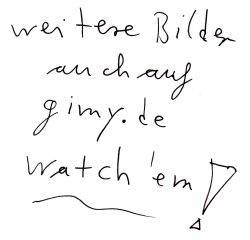 weitere Bilder
auch auf
gimy.de
watch 'em!